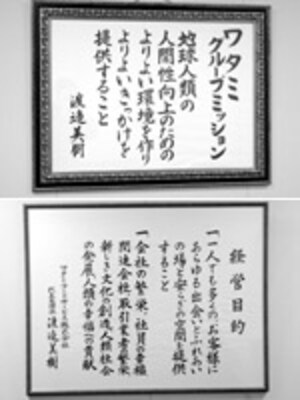 ワタミ
グループミッション
地球人類の
人間性向上のための
よりよい環境を作り
よりよいきっかけを
提供すること
渡邉美樹
経営目的
一、一人でも多くのお客様に
あらゆる出会いとふれあい
の場と安らぎの空間を提供
すること
一、会社の繁栄、社員の幸福、
関連会社・取引業者の繁栄、
新しき文化の創造、人類社会
の発展、人類の幸福への貢献
ワタミフードサービス株式会社
代表取締役 渡邉美樹